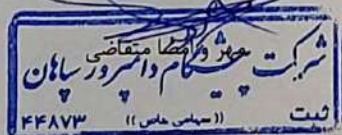 مهر و امضا متقاضی
شرکت پیشگام دامپرور سپاهان
((سهامی خاص)) ثبت ۴۴۸۷۳